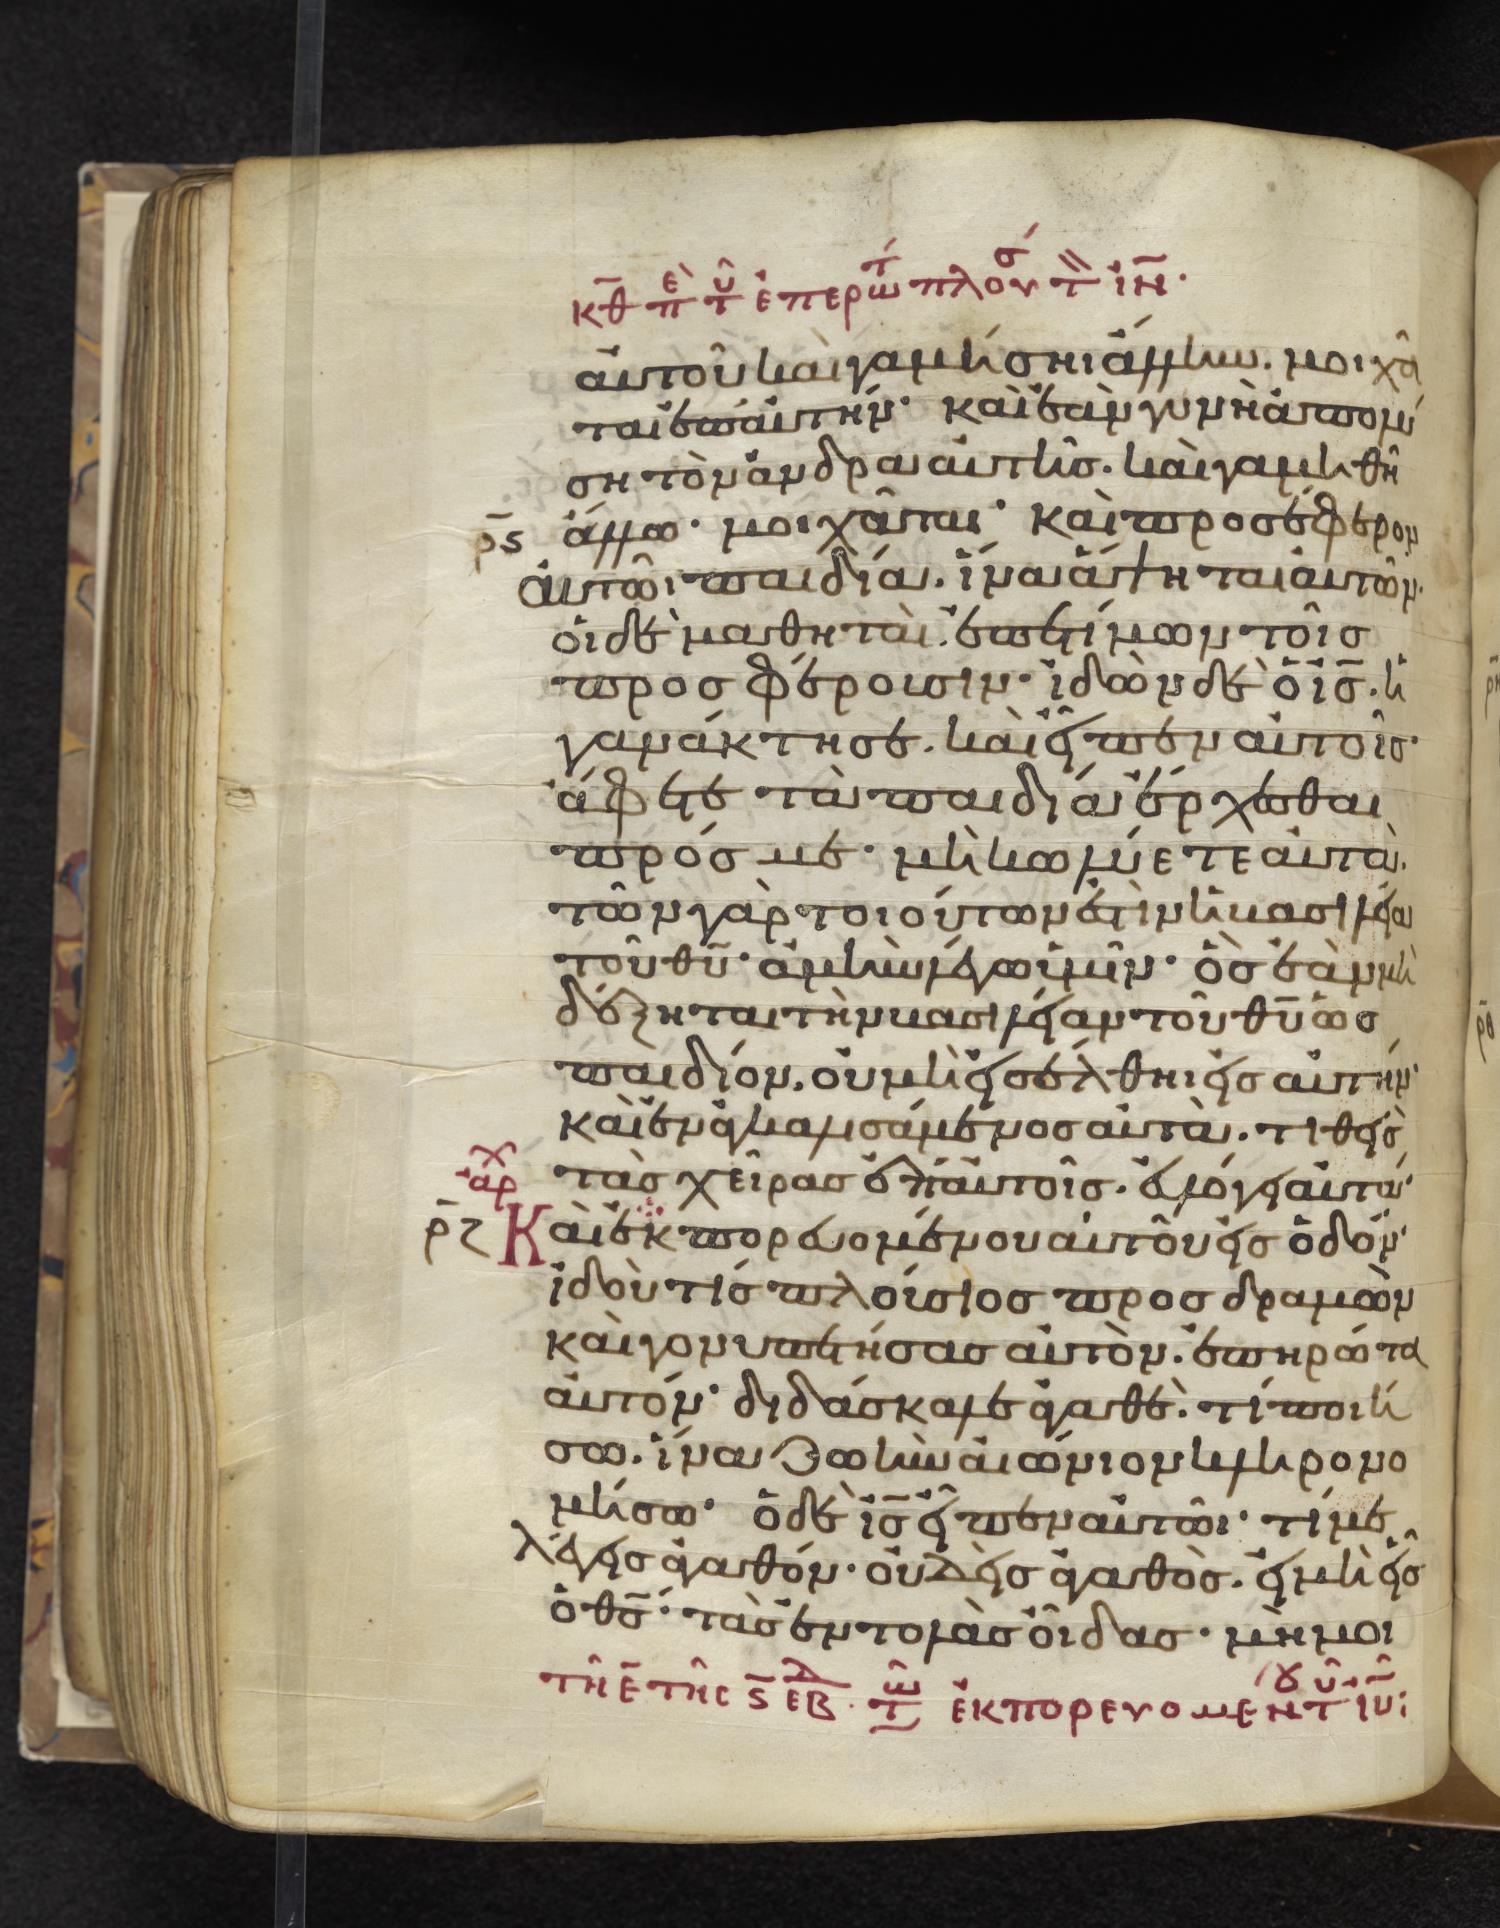 κθ π̅ὲ τ̅ῦ ἐπερωτ́ πλουσ́ τ̀̀ ἰν̅·
αὐτοῦ καὶ γαμήσηι ἄλλην. μοιχᾶ
ται ἐπ' αὐτήν· καὶ ἐὰν γυνὴ ἀπολύ
ση τὸν ἄνδρα αὐτῆσ. καὶ γαμηθῆ
ρ̅ϛ ἄλλω· μοιχᾶται· καὶ προσέφερον
αὐτῶι παιδία. ἵνα ἅψηται αὐτῶν·
οἱ δὲ μαθηταὶ. ἐπετίμων τοῖσ
προσφέρουσιν· ἰδὼν δὲ ὁ ι̅σ̅. ἠ
γανάκτησε. καὶ εἶπεν αὐτοῖσ·
ἄφετε τὰ παιδία ἔρχεσθαι
πρόσ με· μὴ κωλύετε αὐτὰ.
τῶν γὰρ τοιούτων ἐστὶν ἡ βασιλεία
τοῦ θ̅υ̅· ἀμὴν λέγω ὑμῖν· ὃσ ἐὰν μὴ
δέξηται τὴν βασιλείαν τοῦ θ̅υ̅ ὡσ
παιδίον. οὐ μὴ εἰσέλθηι εἰσ αὐτήν·
καὶ ἐναγκαλισάμενοσ αὐτὰ. τιθεὶσ
ἀρχ τὰσ χεῖρασ ἐπ' αὐτοῖσ. εὐλόγει αὐτά·
ρ̅ζ Καὶ ἐκπορευομένου αὐτοῦ εἰσ ὁδόν·
ἰδοὺ τίσ πλούσιοσ προσδραμὼν
καὶ γονυπετήσασ αὐτὸν. ἐπηρώτα
αὐτόν· διδάσκαλε ἀγαθὲ. τί ποιή
σω. ἵνα ζωὴν αἰώνιον κληρονο
μήσω· ὁ δὲ ι̅σ̅ εἶπεν αὐτῶι· τί με
λέγεισ ἀγαθόν· οὐδεὶσ ἀγαθὸσ. εἰ μὴ εἷσ
ὁ θ̅σ̅· τὰσ ἐντολὰσ οἶδασ· μὴ μοι
τῆ ε̅ τῆσ ϛ̅ ἑβδ. τῶ̅ ἐκπορευομένου τ̅ῦ ι̅υ̅·